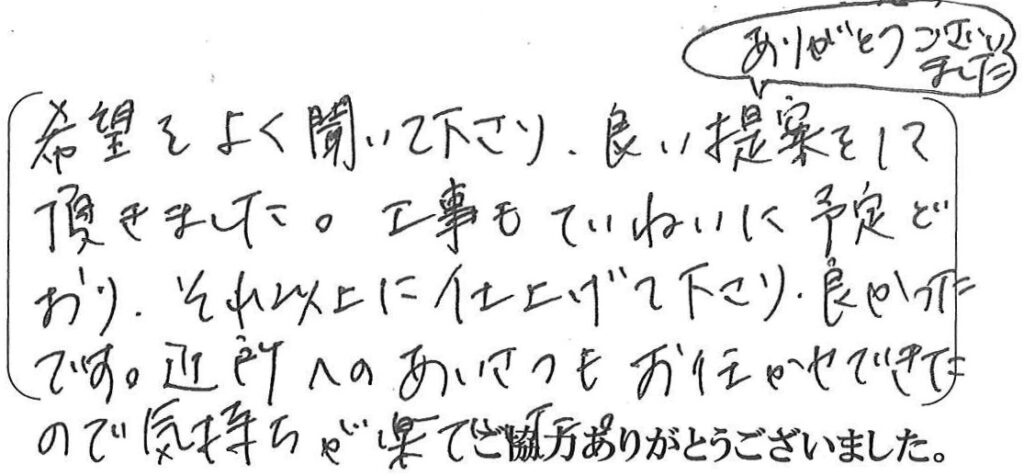 ありがとうござい
ました
希望をよく聞いて下さり、良い提案をして
頂きました。工事もていねいに予定ど
おり、それ以上に仕上げて下さり、良かった
です。近所へのあいさつもお任かせできた
ので気持ちが楽で
ご協力ありがとうございました。